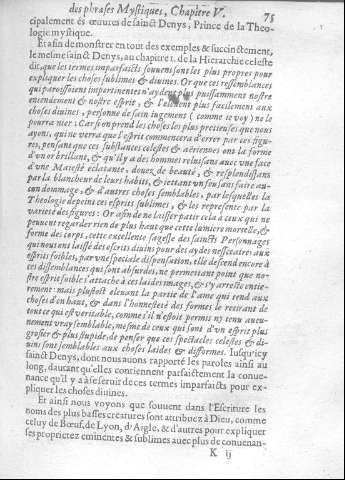 des phrases Mystiques, Chapitre V. 75
cipalement és œuures de sainct Denys, Prince de la Theo-
logie mystique.
Et afin de monstrer en tout des exemples & succinctement,
le mesme sainct Denys, au chapitre 1. de la Hierarchie celeste
dit, que les termes imparfaicts souuent sont les plus propres pour
expliquer les choses sublimes & diuines. Or que ces ressemblances
qui paroissoient impertinentes n'aydent plus puissamment nostre
entendement & nostre esprit, & l'esleuent plus facilement aux
choses diuines, personne de sain iugement ( comme ie voy ) ne le
pourra nier: Car si on prend les choses les plus precieuses que nous
ayons, qui ne verra que l'esprit commencera d'errer par ces figu-
res, pensant que ces substances celestes & aëriennes ont la forme
d'vn or brillant, & qu'il y a des hommes reluisans auec vne face
d'vne Maiesté éclatante, douez de beauté, & resplendissans
par la blancheur de leurs habits, & iettant vn feu sans faire au-
cun dommage, & d'autres choses semblables, par lesquelles la
Theologie depeint ces esprits sublimes, & les represente par la
varieté des figures: Or afin de ne laisser patir cela à ceux qui ne
peuuent regarder rien de plus haut que cette lumiere mortelle, &
forme des corps, cette excellente sagesse des saincts Personnages
qui nous ont laissé des escrits diuins pour des aydes necessaires aux
esprits foibles, par vne speciale dispensation, elle descend encore à
ces dissemblances qui sont absurdes, ne permettant point que no-
stre esprit foible s'attache à ces laides images, & s'y arreste entie-
rement: mais plustost éleuant la partie de l'ame qui tend aux
choses d'en haut, & dans l'honnesteté des formes le retirant de
tout ce qui est veritable, comme s'il n'estoit permis ny tenu aucu-
nement vray semblable, mesme de ceux qui sont d'vn esprit plus
grossier & plus stupide, de penser que ces spectacles celestes & di-
uins sont semblables aux choses laides & difformes. Iusqu'icy
sainct Denys, dont nous auons rapporté les paroles ainsi au
long, dautant qu'elles contiennent parfaictement la conue-
nance qu'il y a à se seruir de ces termes imparfaicts pour ex-
pliquer les choses diuines.
Et ainsi nous voyons que souuent dans l'Escriture les
noms des plus basses creatures sont attribuez à Dieu, comme
celuy de Bœuf, de Lyon, d'Aigle, & d'autres pour expliquer
ses proprietez eminentes & sublimes auec plus de conuenan-
K ij